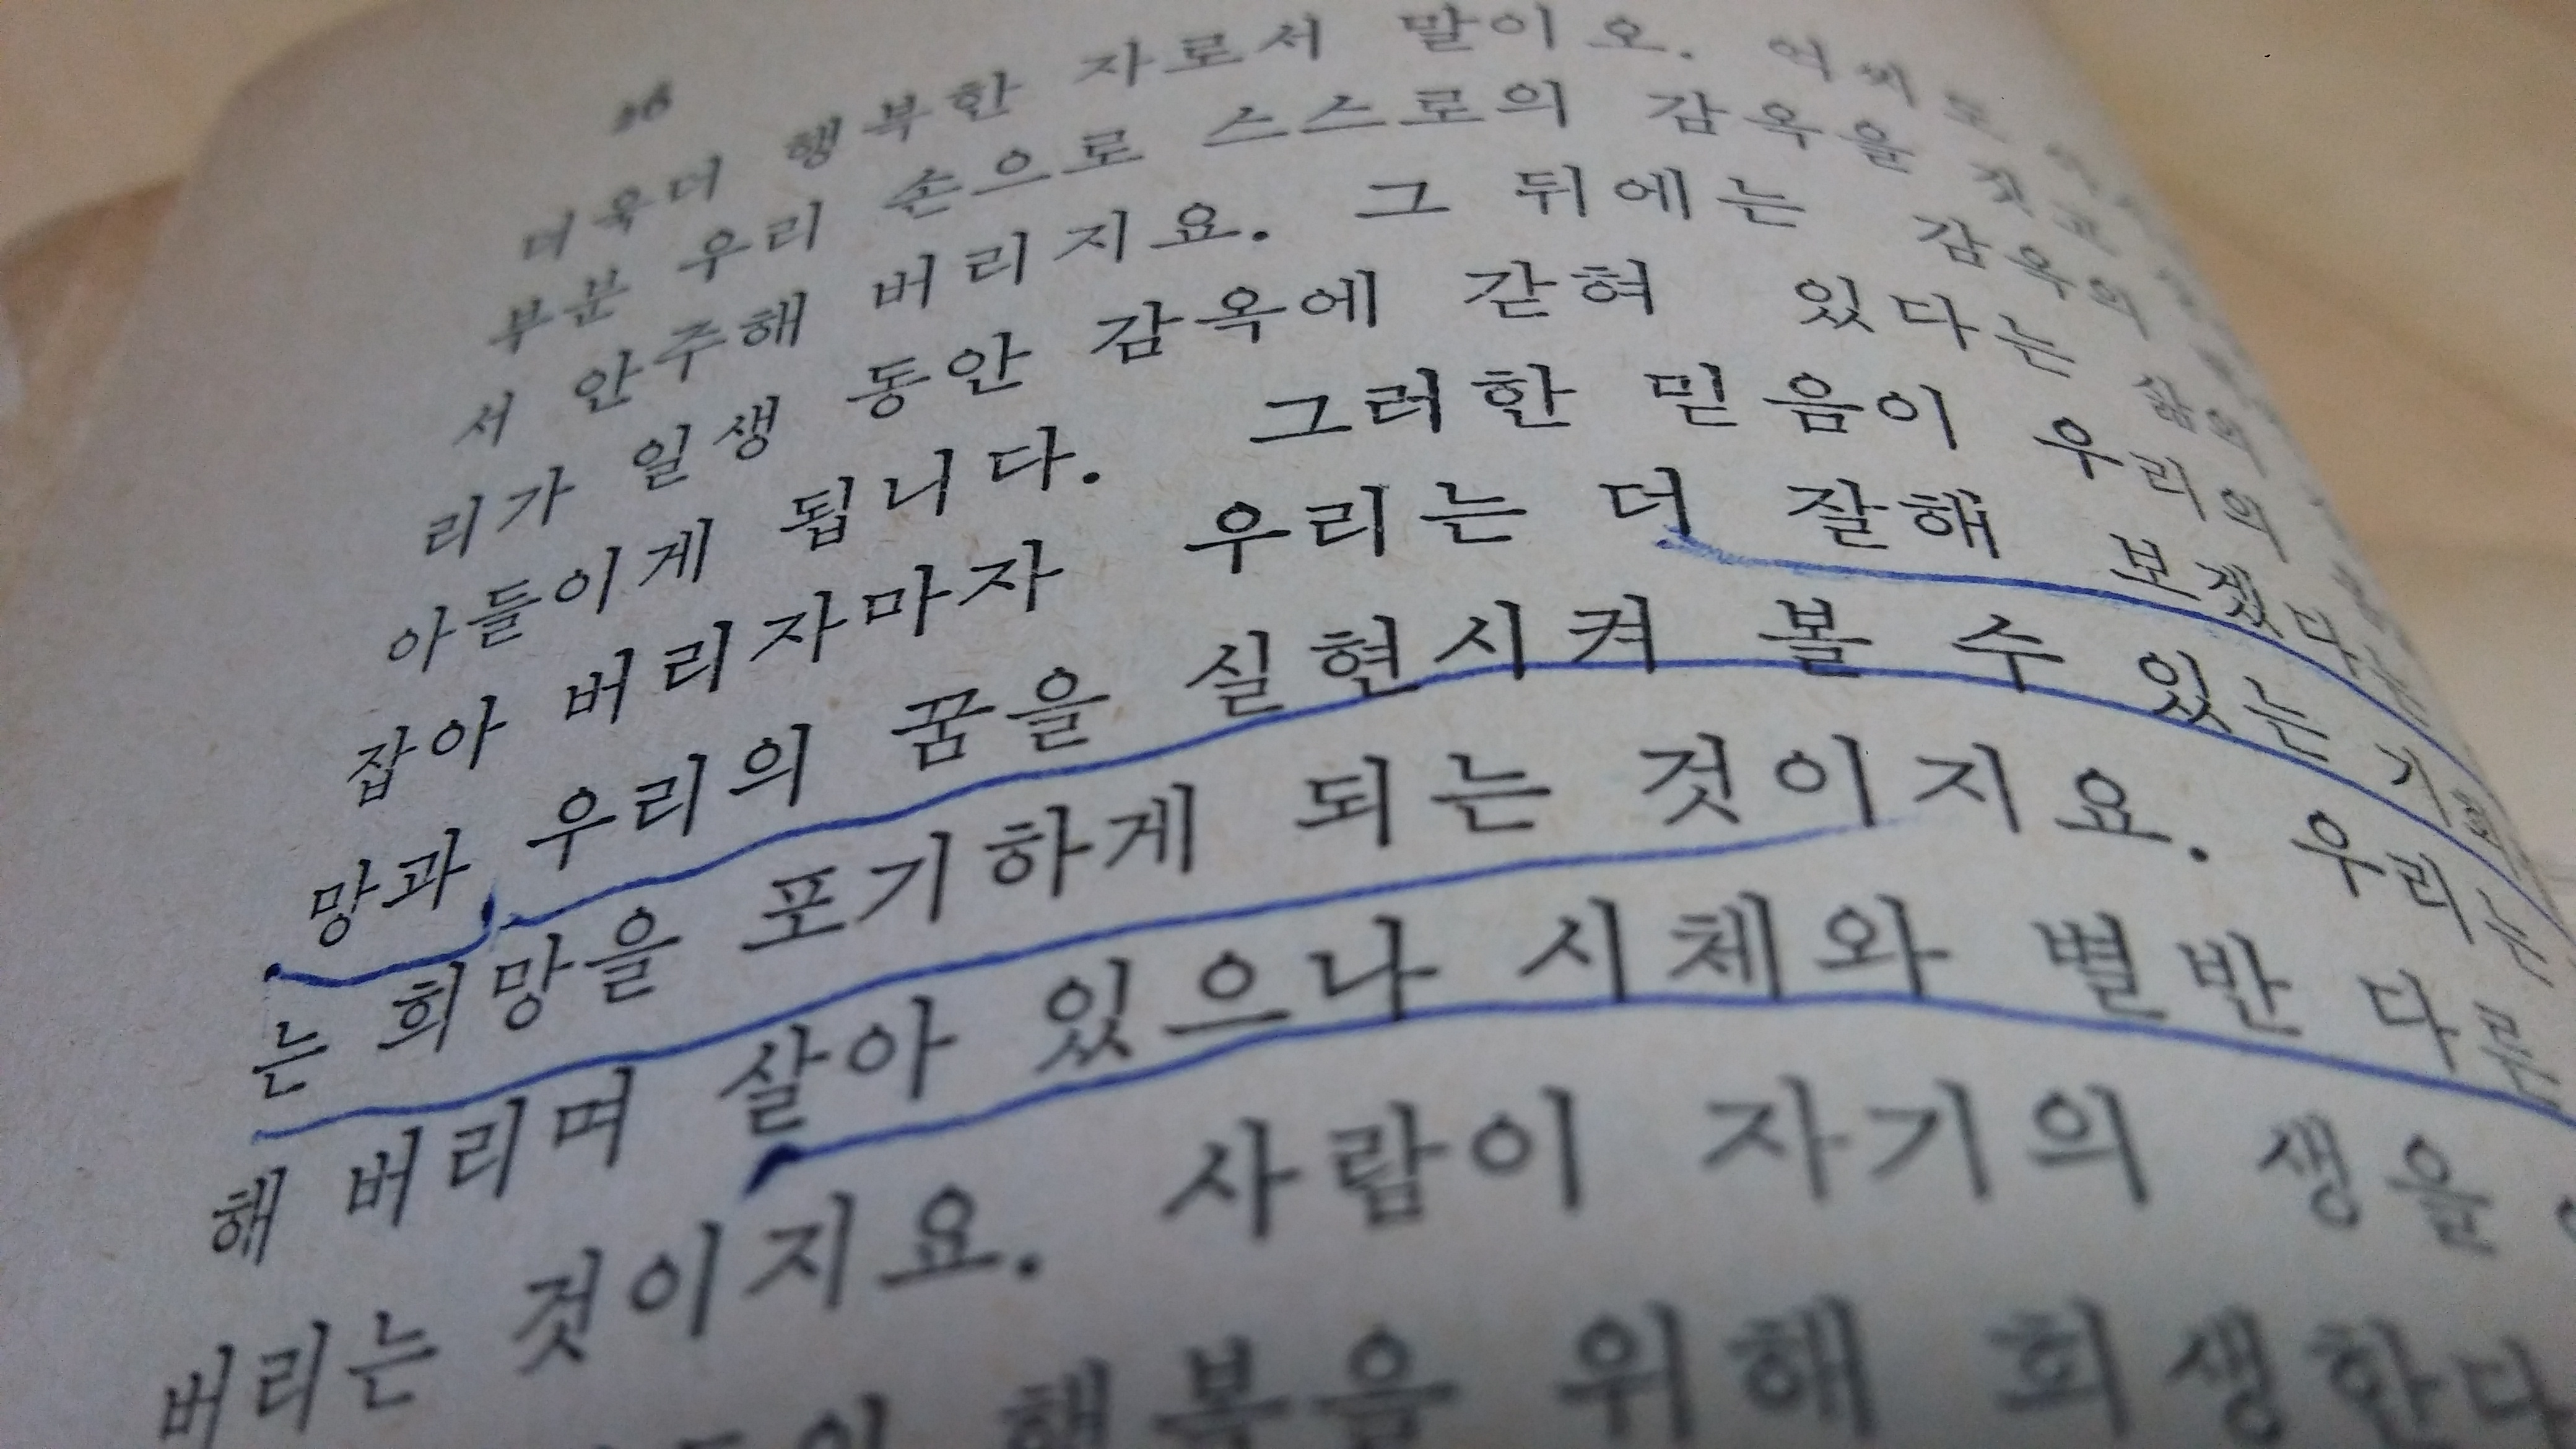 더욱더 행복한 자로서 말이오.
부분 우리 손으로 스스로의 감옥을 짓고
서 안주해 버리지요. 그 뒤에는 감옥의
리가 일생 동안 감옥에 갇혀 있다는 삶의
아들이게 됩니다. 그러한 믿음이 우리의
잡아 버리자마자 우리는 더 잘해 보겠다는
망과 우리의 꿈을 실현시켜 볼 수 있는
는 희망을 포기하게 되는 것이지요. 우리는
해 버리며 살아 있으나 시체와 별반 다른
버리는 것이지요. 사람이 자기의 생을
행복을 위해 희생한다